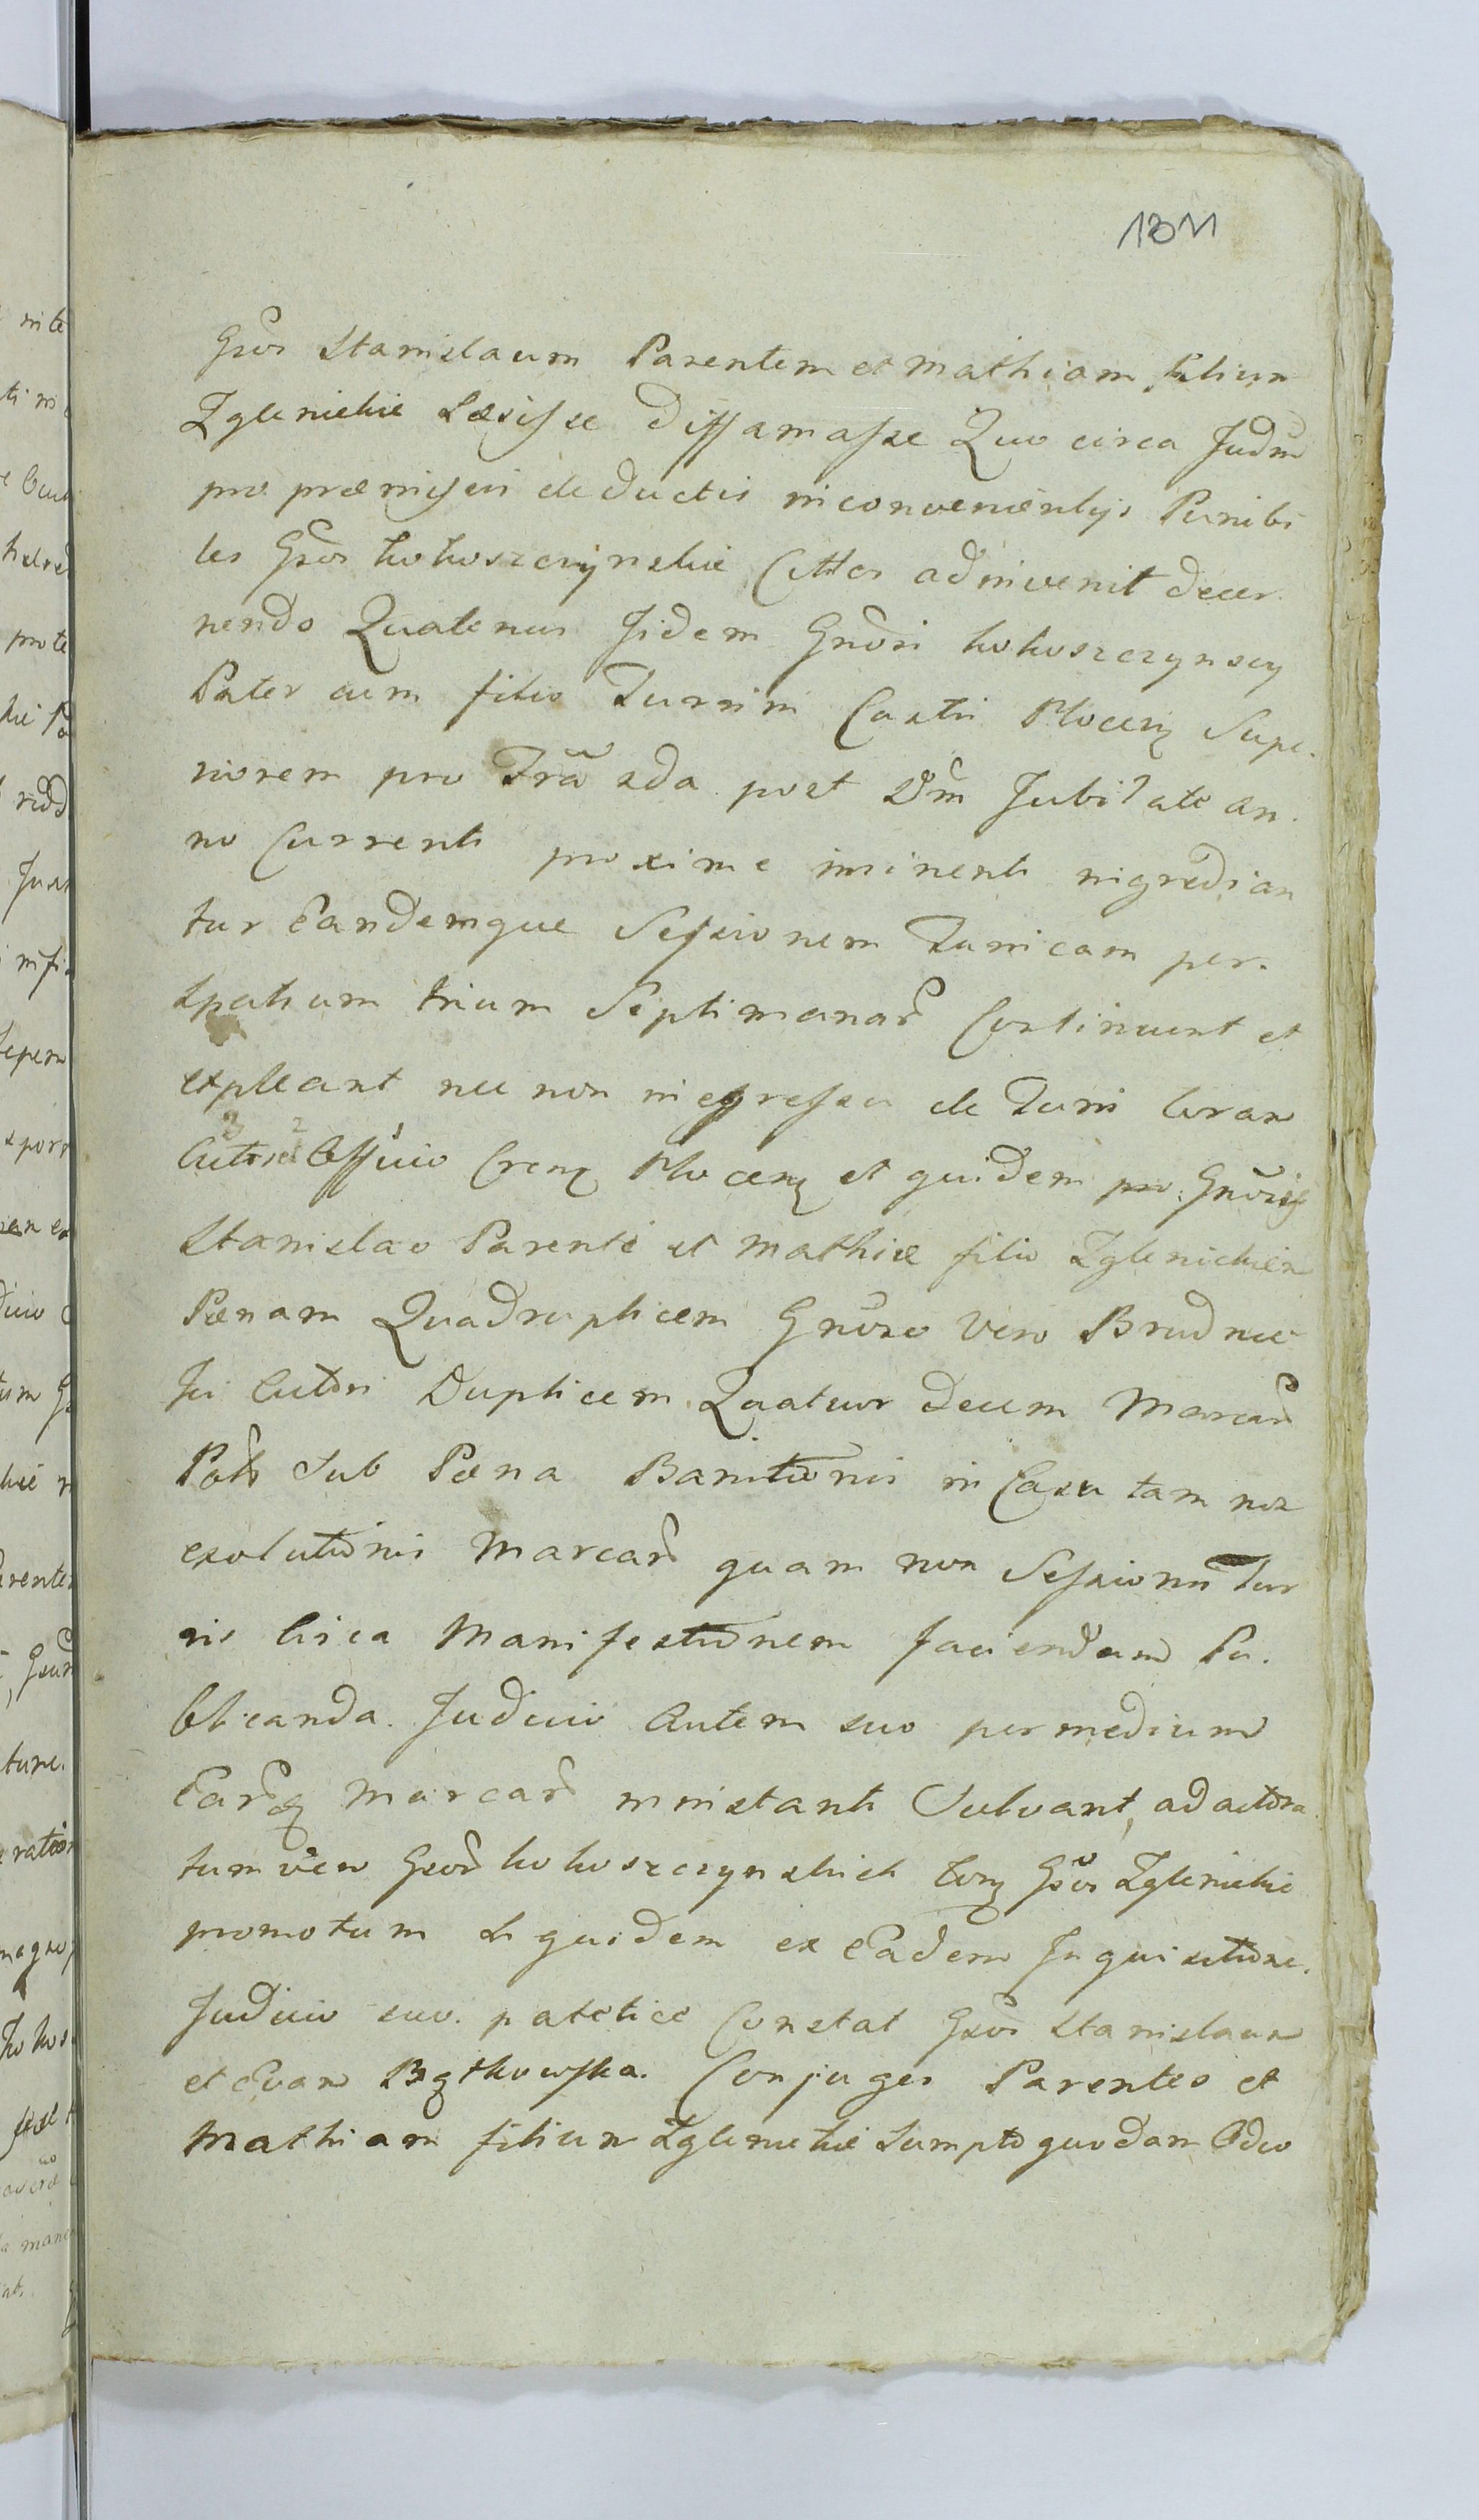 1201
Gsos Stanislaum Parentem et Mathiam filium
Zglenickie Læsisse diffamasse Quo circa Judm
pro præmissis deductis inconvenientijs Punibi
les Gsos Kokoszczynskie Cttos adinvenit decer
nendo Quatenus Jidem Gnosi Kokoszczynscy
Pater cum filio Turrim Castri Plocen Supe
riorem pro Fria 2da post Dom Jubilate an
no Currenti proxime iminenti ingredian
tur Eandemque Sessionem Turricam per
Spatium trium Septimanar Continuent et
expleant nec non in egressu de Turri Coram
Actore Officio Cren Plocen et quidem pro Gnosis
Stanislao Parente et Mathiæ filio Zglenickie
Pænam Quadruplicem Gnoso Vero Brudnic
ki Actori Duplicem Quatuor decem Marcar
Polo Sub Pæna Banitionis in Casu tam non
exolutionis Marcar quam non Sessionis Tur
ris Circa Manifestionem faciendam Pu
blicanda. Judicio Autem suo per medium
Earq Marcar in instanti Solvant, ad actora
tum vero Gsor Kokoszczynskich Con Gsos Zglenickie
promotum Si quidem ex Eadem Inquisitione
Judicio suo patetice Constat Gsos Stanislaum
et Evam Bątkowska Conjuges Parentes et
Mathiam filium Zglenickie Sumpto quodam Odio